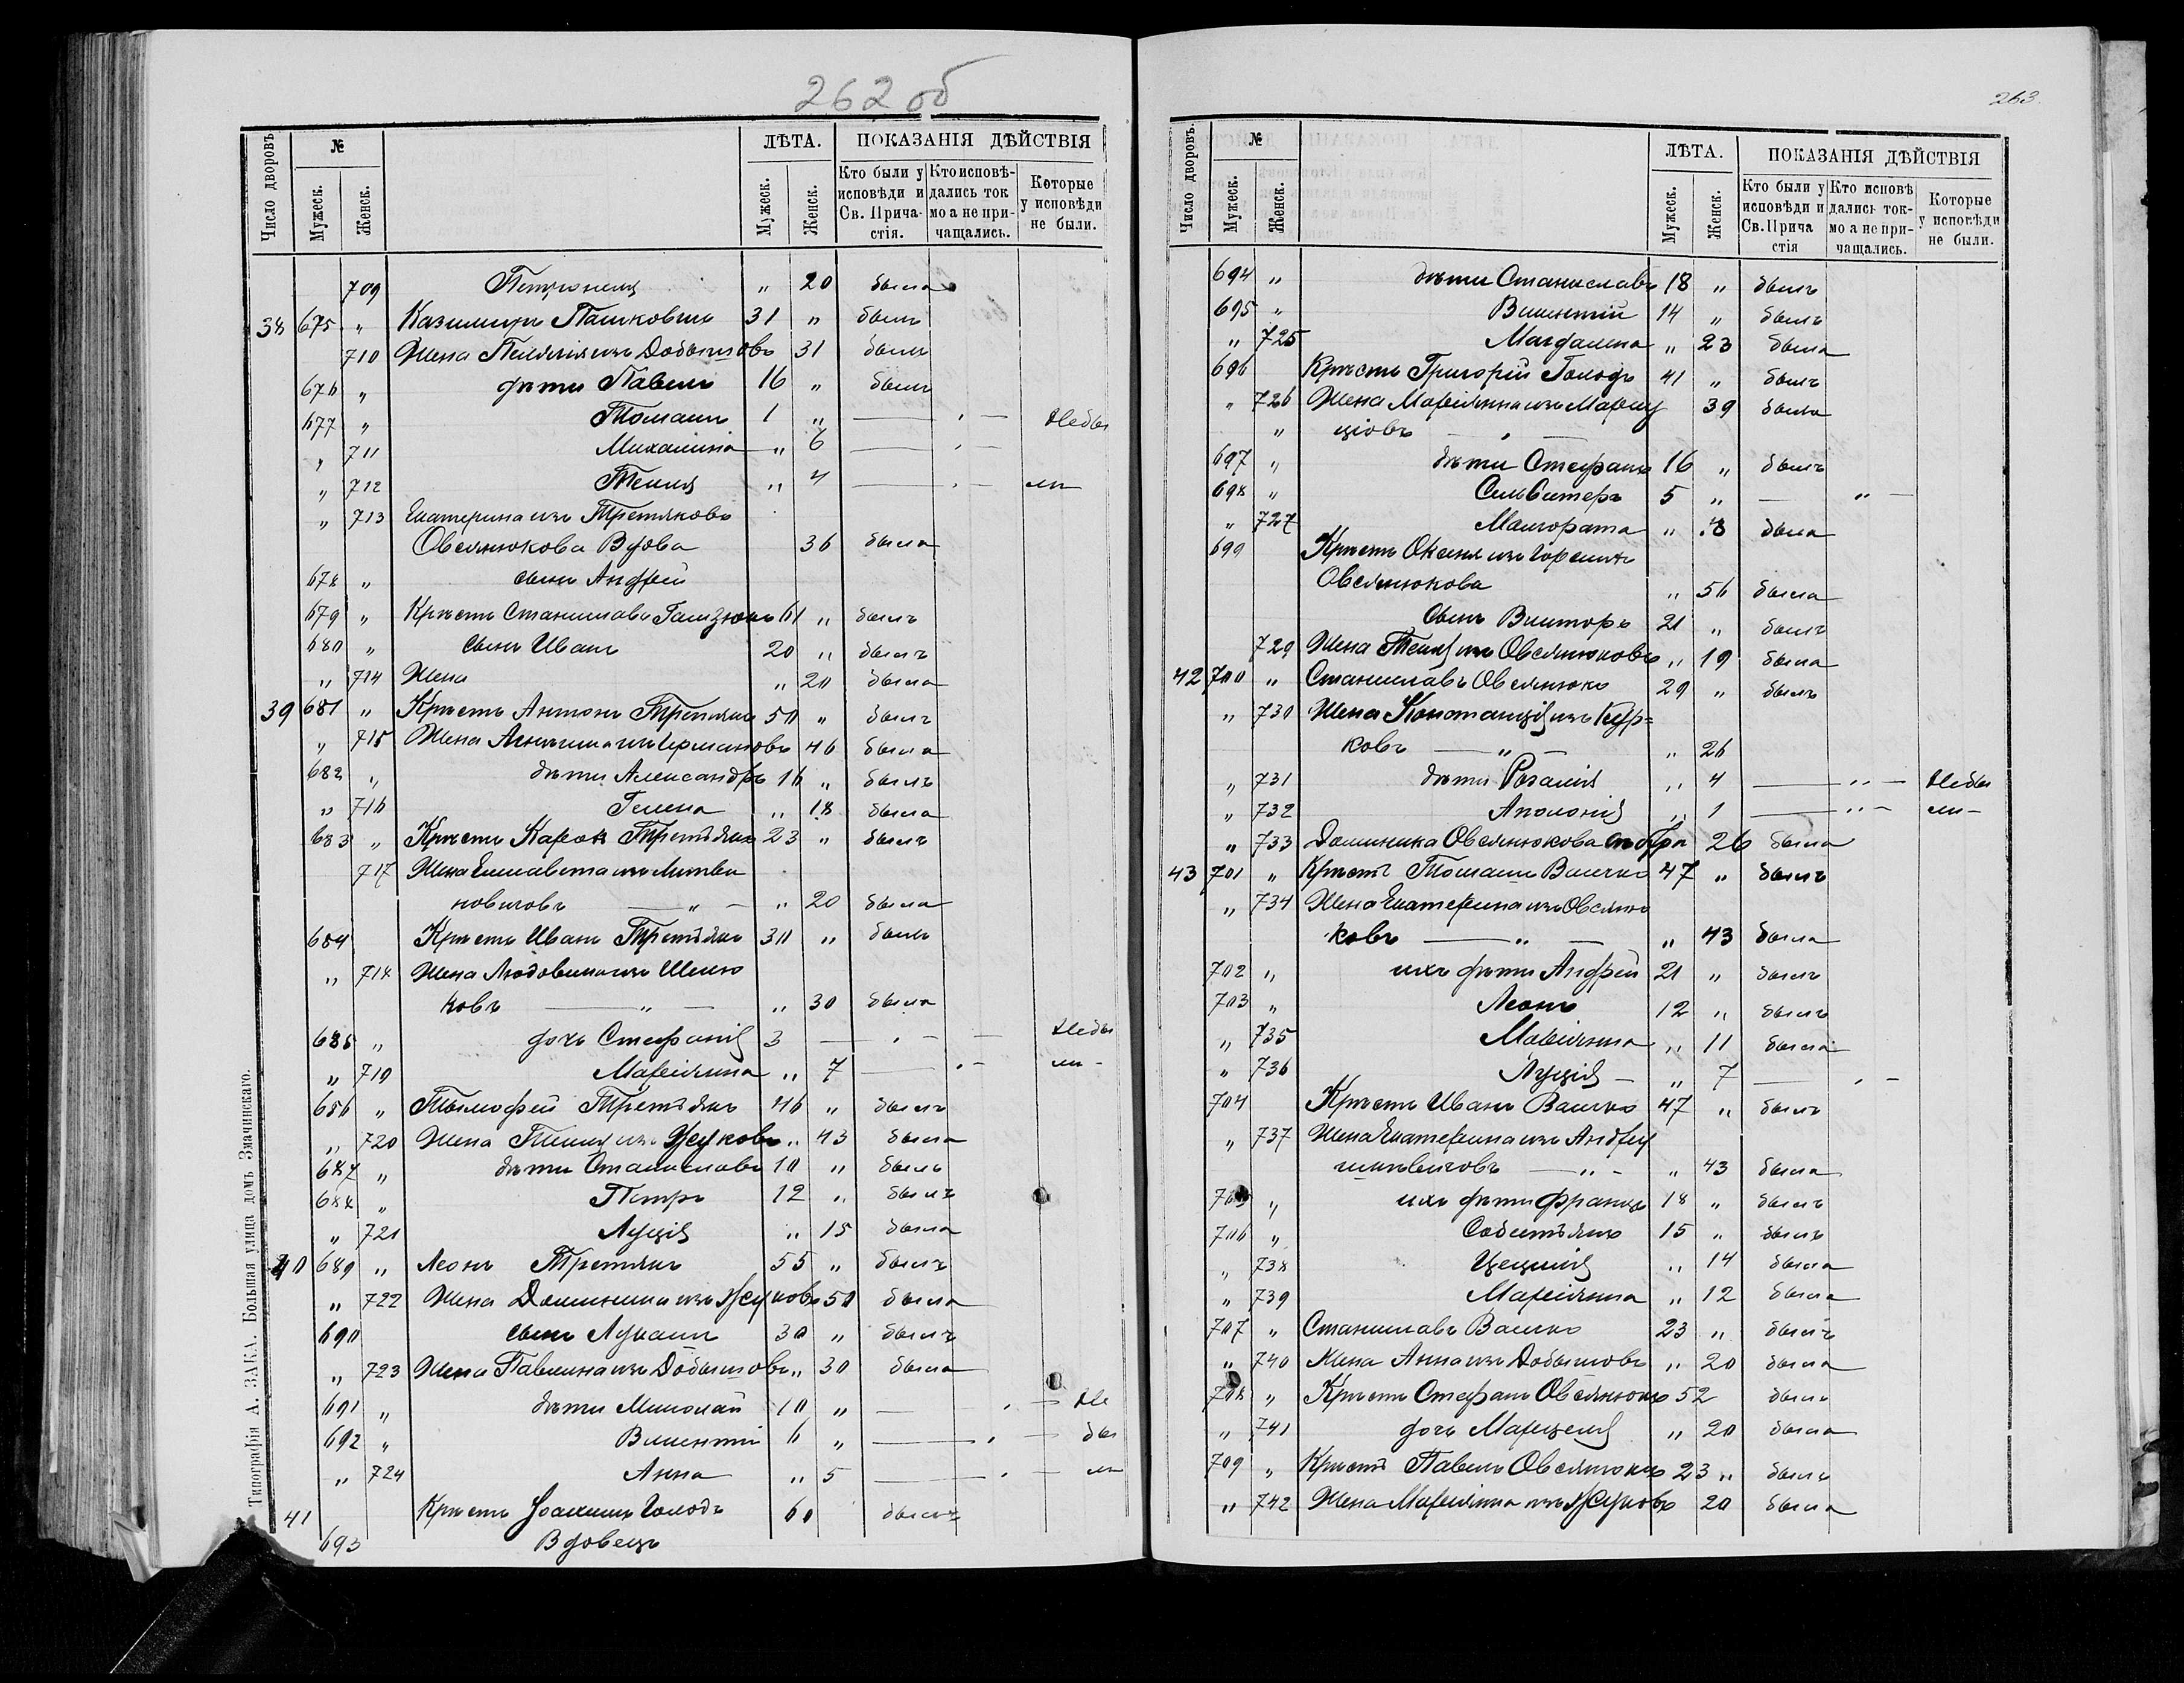 262 об
Число дворовъ
№
Мужеск.
Женск.
ЛѢТА.
Мужеск.
Женск.
ПОКАЗАНІЯ ДѢЙСТВІЯ
Кто были у исповѣди и Св. Прича-стія.
Кто исповѣ-дались ток мо а не при-чащались.
Которые у исповѣди не были.
709 Петронеля " 20 была
38 675 " Казимиръ Пашковичъ 31 " былъ
710 Жена из Добышовъ 31 был
676 " дѣти Павелъ 16 " былъ
677 " Томашъ 1 " — " — Небы
" 711 Михалина " 6 — " —
" 712 Текля " 4 — " — ли
" 713 Екатерина изъ Третяковъ
Овсянюкова Вдова 36 была
678 " сынъ Андрей
679 " Крѣсть Станиславъ 61 " былъ
680 " Сынъ Иванъ 20 " былъ
" 714 Жена " 20 была
39 681 " Крѣсть Антонъ Третякъ 50 " былъ
" 715 Жена изъ 46 была
682 " дѣти Александръ 16 " былъ
" 716 Гелена " 18 была
683 " Крѣсть Кароль Третьякъ 23 " былъ
717 Жена Елисавета изъ Литви
новичовъ — " — " 20 была
684 Крѣсть Иванъ Третьякъ 30 " былъ
" 718 Жена Людовика изъ Шелю
ковъ — " — " 30 была
685 " дочь Стефанія 3 — " — Небы
" 719 Маріянна " 7 — " — ли -
686 " Тимофей Третьякъ 46 " былъ
" 720 Жена Текля изъ Жуковъ " 43 была
687 " дѣти Станиславъ 10 " былъ
688 " Петръ 12 " былъ
" 721 Луція " 15 была
40 689 " Леонъ Третякъ 55 " былъ
" 722 Жена Доминика изъ Жуковъ 50 была
690 сынъ Лукашъ 30 " былъ
" 723 Жена Павлина изъ Добышовъ " 30 была
691 " дѣти Миколай 10 " — " — Не
692 " Викентій 6 " — " — бы
" 724 Анна " 5 — " — ли
41 Крѣсть Іоахимъ Голодъ 60 былъ
693 Вдовецъ
Типографія А. ЗАКА. Большая улица домъ Змачинскаго.
263.
Число дворовъ.
№
Мужеск.
Женск.
ЛѢТА.
Мужеск.
Женск.
ПОКАЗАНІЯ ДѢЙСТВІЯ
Кто были у исповѣди и Св. Прича стія
Кто исповѣ дались ток-мо а не при-чащались.
Которые у исповѣди не были.
694 " дѣти Станиславъ 18 " былъ
695 " Викентій 14 " былъ
" 725 Магдалина " 23 была
696 Крѣсть Григорій Голодъ 41 " былъ
" 726 Жена Маріянна изъ Марцу 39 была
" ціовъ — " —
697 " дѣти Стефанъ 16 " былъ
698 " Сильвестеръ 5 " — " —
" 727 Малгората " 8 была
699 Крѣсть Оксеня изъ
Овсянюкова " 56 была
Сынъ Викторъ 21 " былъ
729 Жена Текля изъ Овсянюковъ " 19 была
42 700 " Станиславъ Овсянюкъ 29 " былъ
" 730 Жена Констанція изъ Кур=
ковъ — " — " 26
" 731 дѣти Розалія " 4 — " — Небы
" 732 Аполонія " 1 — " — ли -
" 733 Доминика Овсянюкова 26 была
43 701 " Крѣсть Томашъ Валько 47 " былъ
" 734 Жена Екатерина изъ Овсяню
ковъ — " — " 43 была
702 " ихъ дѣти Андрей 21 " былъ
703 " Леонъ 12 " былъ
" 735 Маріянна " 11 была
" 736 Луція — " 7 — " —
704 Крѣсть Иванъ Валько 47 " былъ
" 737 Жена Екатерина изъ Андру
шкевичовъ — " — " 43 была
705 " ихъ дѣти Францъ 18 " былъ
706 " Себестьянъ 15 " былъ
" 738 Цецилія " 14 была
" 739 Маріянна " 12 была
707 " Станиславъ Валько 23 " былъ
" 740 Жена Анна изъ Добышовъ " 20 была
708 " Крѣсть Стефанъ Овсянюкъ 52 былъ
" 741 дочь Марцеля " 20 была
709 " Крѣсть Павелъ Овсянюкъ 23 " былъ
" 742 Жена Маріянна изъ Жуковъ 20 была